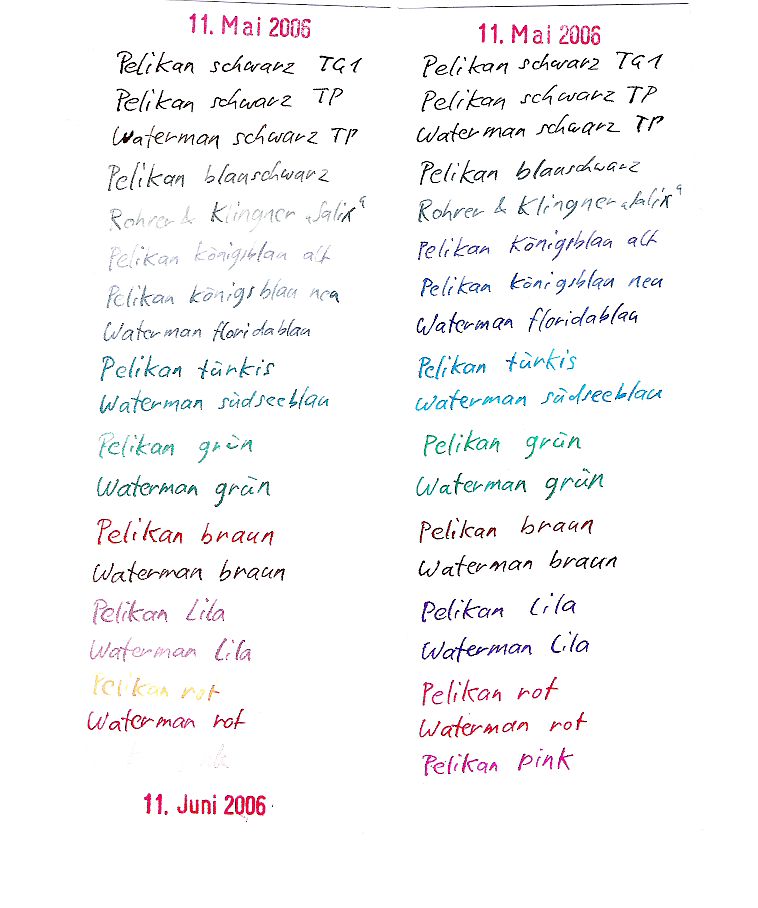 11. Mai 2006
Pelikan schwarz TG1
Pelikan schwarz TP
Waterman schwarz TP
Pelikan blauschwarz
Rohrer & Klingner „Salix“
Pelikan königsblau alt
Pelikan königsblau neu
Waterman floridablau
Pelikan türkis
Waterman südseeblau
Pelikan grün
Waterman grün
Pelikan braun
Waterman braun
Pelikan Lila
Waterman Lila
Pelikan rot
Waterman rot
11. Juni 2006
11. Mai 2006
Pelikan schwarz TG1
Pelikan schwarz TP
Waterman schwarz TP
Pelikan blauschwarz
Rohrer & Klingner „Salix“
Pelikan königsblau alt
Pelikan königsblau neu
Waterman floridablau
Pelikan türkis
Waterman südseeblau
Pelikan grün
Waterman grün
Pelikan braun
Waterman braun
Pelikan Lila
Waterman Lila
Pelikan rot
Waterman rot
Pelikan pink